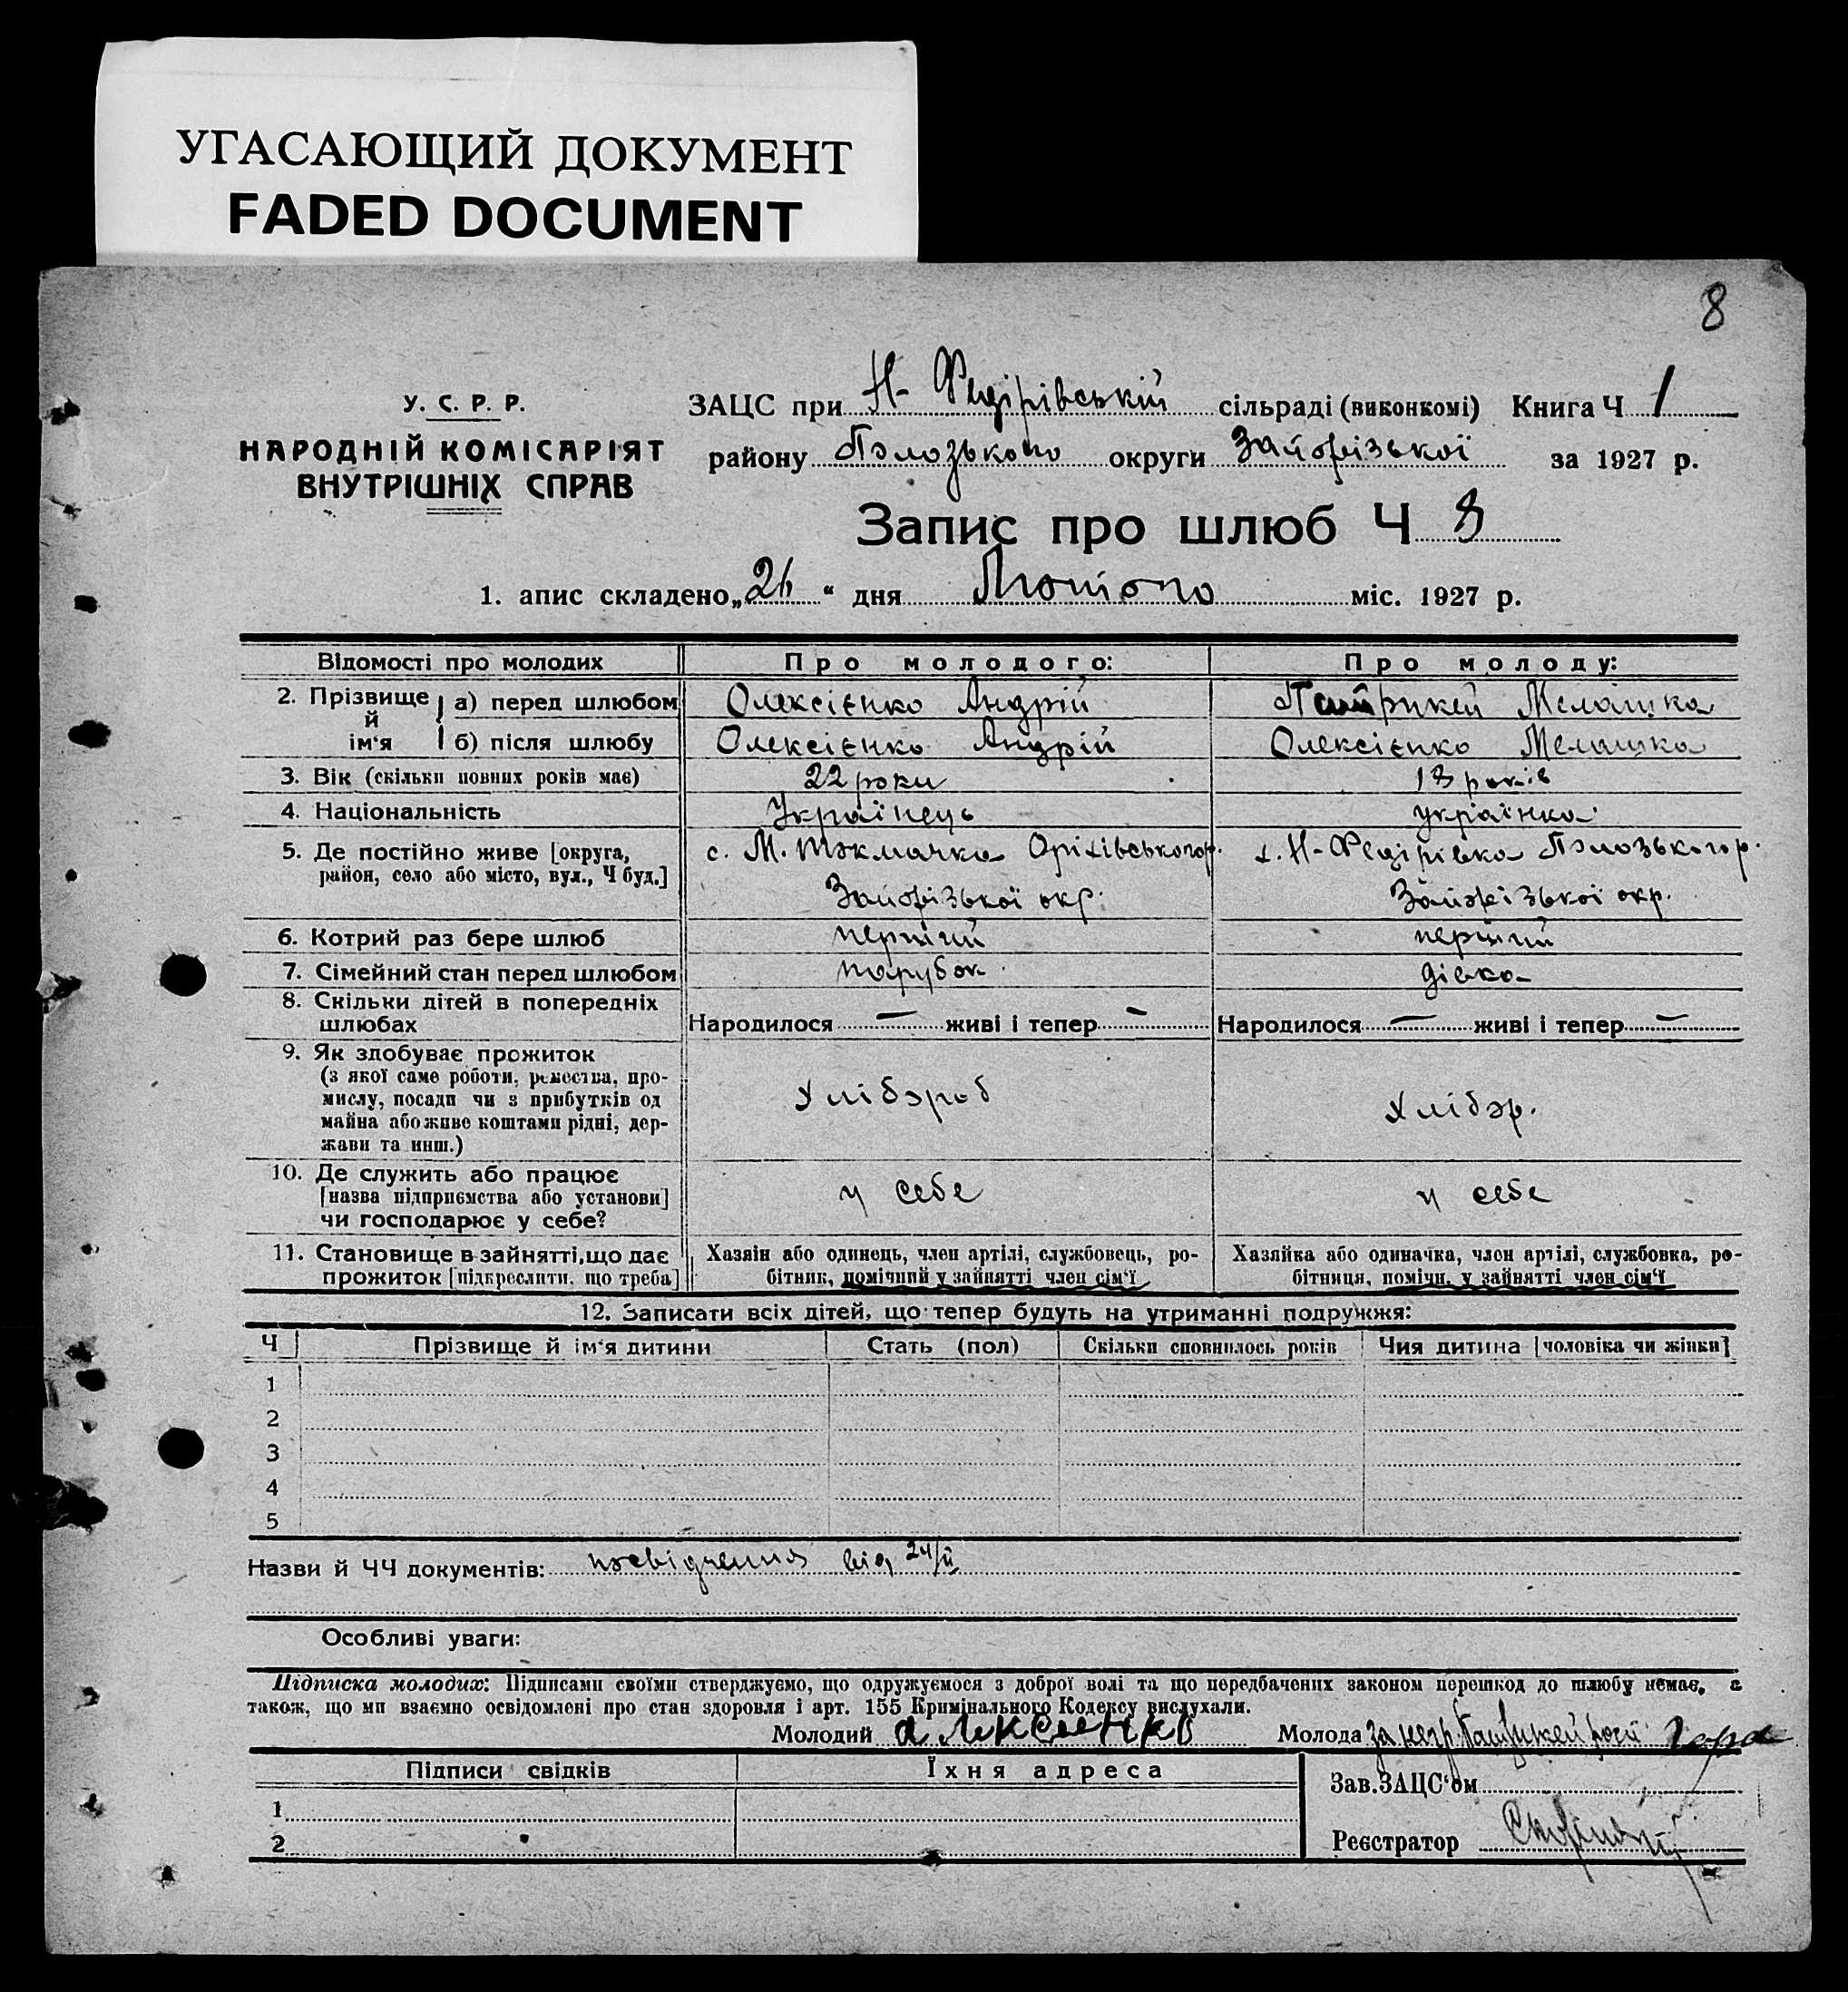 УГАСАЮЩИЙ ДОКУМЕНТ
FADED DOCUMENT
8
У. С. Р. Р.
НАРОДНІЙ КОМІСАРІЯТ
ВНУТРІШНІХ СПРАВ
ЗАЦС при Н-Федірівській сільраді (виконкомі) Книга Ч 1
району Пологського округи Запорізької за 1927 р.
Запис про шлюб Ч 8
1. апис складено „26“ дня Лютого міс. 1927 р.
Відомості про молодих Про молодого: Про молоду:
2. Прізвище й ім‘я а) перед шлюбом Олексієнко Андрій Патрикей Мелашка
б) після шлюбу Олексієнко Андрій Олексієнко Мелашка
3. Вік (скільки повних років має) 22 роки 18 років
4. Національність Українець українка
5. Де постійно живе [округа, с. М. Токмачка Оріхівського р. х. Н-Федірівка Пологського р.
район, село або місто, вул., Ч буд.] Запорізької окр. Запорізької окр.
6. Котрий раз бере шлюб перший перший
7. Сімейний стан перед шлюбом парубок дівка
8. Скільки дітей в попередніх
шлюбах Народилося — живі і тепер — Народилося — живі і тепер —
9. Як здобуває прожиток
(з якої саме роботи, ремества, про-
мислу, посади чи з прибутків од Хлібороб Хлібор.
майна або живе коштами рідні, дер-
жави та инш.)
10. Де служить або працює
[назва підприємства або установи] у себе у себе
чи господарює у себе?
11. Становище в зайнятті, що дає Хазяїн або одинець, член артілі, службовець, ро- Хазяйка або одиначка, член артілі, службовка, ро-
прожиток [підкреслити, що треба] бітник, помічний у зайнятті член сім‘ї бітниця, помічн. у зайнятті член сім‘ї
12. Записати всіх дітей, що тепер будуть на утриманні подружжя:
Ч Прізвище й ім‘я дитини Стать (пол) Скільки сповнилось років Чия дитина [чоловіка чи жінки]
1
2
3
4
5
Назви й ЧЧ документів: посвідчення від 24/II
Особливі уваги:
Підписка молодих: Підписами своїми стверджуємо, що одружуємося з доброї волі та що передбачених законом перешкод до шлюбу немає, а
також, що ми взаємно освідомлені про стан здоровля і арт. 155 Кримінального Кодексу вислухали.
Молодий Алексеенко Молода за негр. Патрикей
Підписи свідків Їхня адреса Зав. ЗАЦС‘ом
1
2 Реєстратор